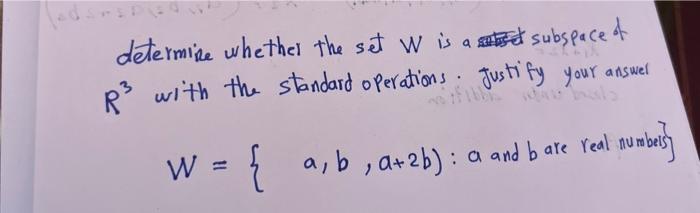 determine whether the set W is a subspace of
R³ with the standard operations. Justify your answer
W = { a, b, a+2b) : a and b are real numbers}